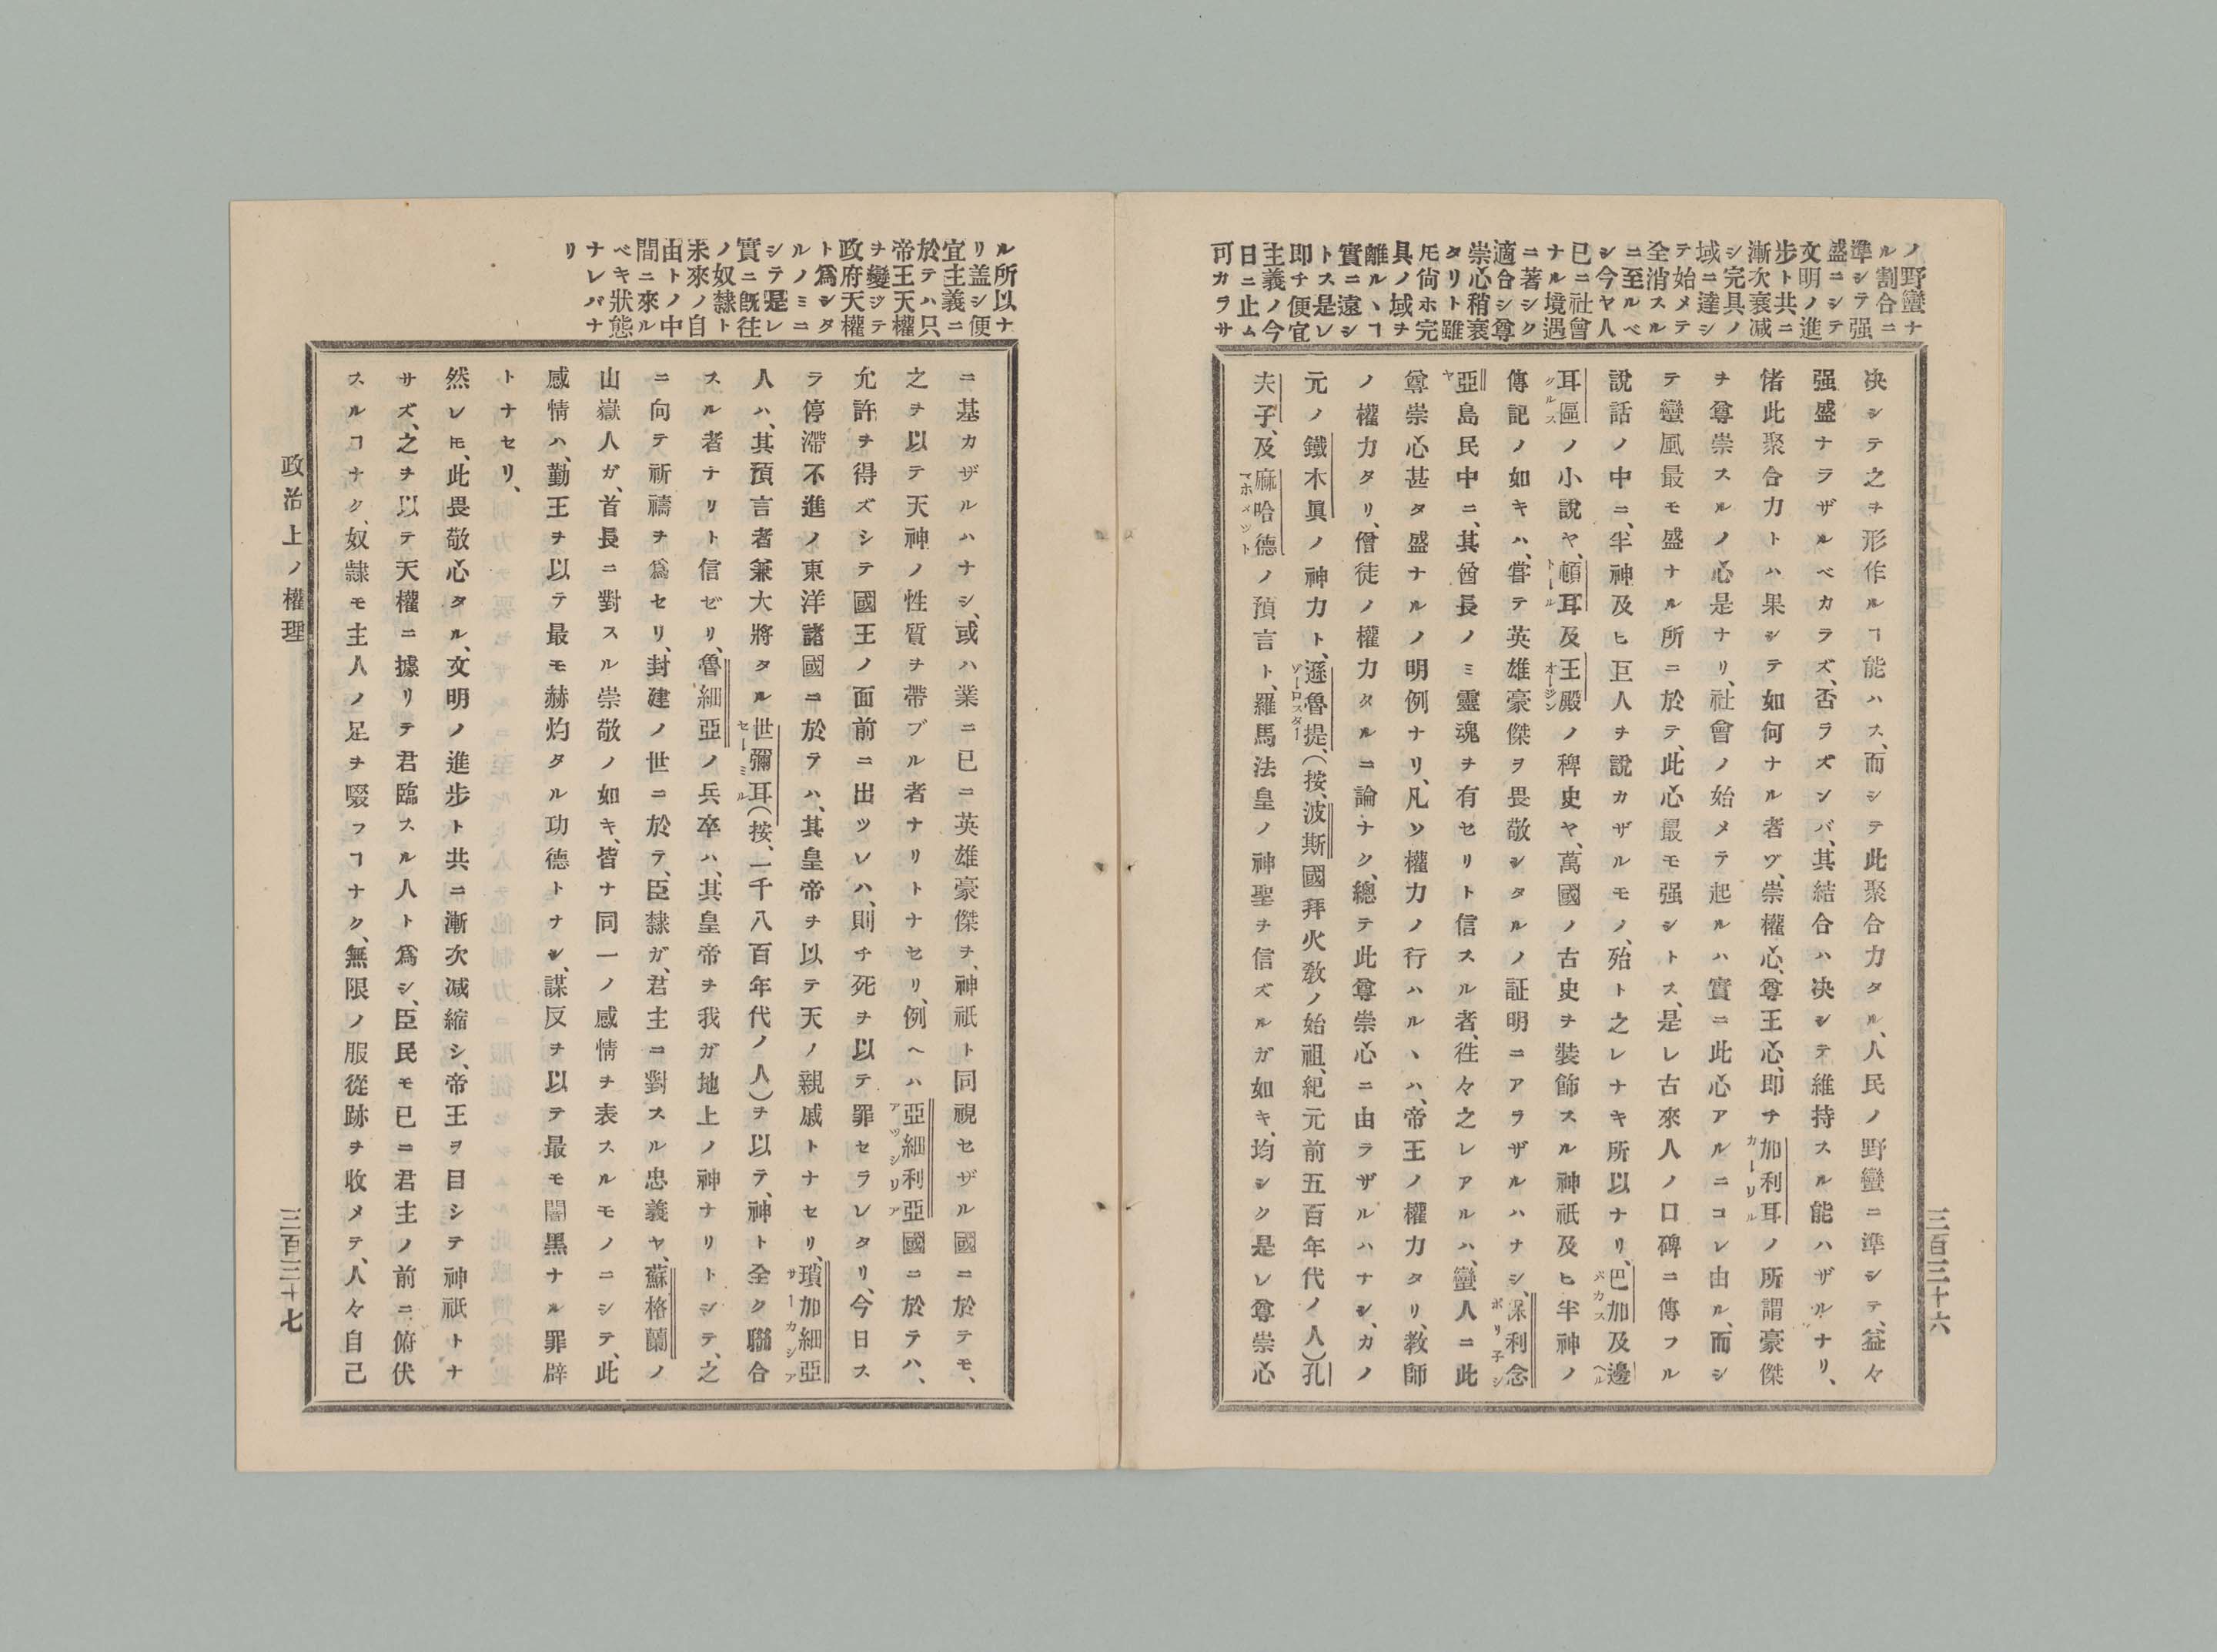 ノ野蠻ナ
ル割合ニ
準シテ强
盛ニシテ
文明ノ進
步ト共ニ
漸次衰减
シ完具ノ
域ニ達シ
テ始メテ
全消スル
ニ至ルベ
シ今ヤ人
已ニ社會
ナル境遇
ニ著シク
適合シ尊
崇心稍衰
タリト雖
𪜈尙ホ完
具ノ域ヲ
離ルヽヿ
實ニ遠シ
トス是レ
即チ便宜
主義ノ今
日ニ止ム
可カラサ
决シテ之ヲ形作ルヿ能ハス、而シテ此聚合力タル、人民ノ野蠻ニ準シテ、益々
强盛ナラザルベカラズ、否ラズンバ、其結合ハ决シテ維持スル能ハザルナリ、
偖此聚合力トハ果シテ如何ナル者ゾ、崇權心、尊王心、即チ加利耳ノ所謂豪傑
カーリル
ヲ尊崇スルノ心是ナリ、社會ノ始メテ起ルハ實ニ此心アルニコレ由ル、而シ
テ蠻風最モ盛ナル所ニ於テ、此心最モ强シトス、是レ古來人ノ口碑ニ傳フル
說話ノ中ニ、半神及ヒ巨人ヲ說カザルモノ、殆ト之レナキ所以ナリ、巴加及邊
バカス ヘル
耳區ノ小說ヤ、頓耳及王殿ノ稗史ヤ、萬國ノ古史ヲ裝飾スル神祇及ヒ半神ノ
クルス トール オージン
傳記ノ如キハ、甞テ英雄豪傑ヲ畏敬シタルノ証明ニアラザルハナシ、保利念
ポリ子シ
亞島民中ニ、其酋長ノミ靈魂ヲ有セリト信スル者、徃々之レアルハ、蠻人ニ此
ヤ
尊崇心甚タ盛ナルノ明例ナリ、凡ソ權力ノ行ハルヽハ、帝王ノ權力タリ、教師
ノ權力タリ、僧徒ノ權力タルニ論ナク、總テ此尊崇心ニ由ラザルハナシ、カノ
元ノ鐵木眞ノ神力ト、遜魯提、(按、波斯國拜火敎ノ始祖、紀元前五百年代ノ人)孔
ゾーロスター
夫子、及麻哈德ノ預言ト、羅馬法皇ノ神聖ヲ信ズルガ如キ、均シク是レ尊崇心
マホメツト
三百三十六
ル所以ナ
リ盖シ便
宜主義ニ
於テハ只
帝王天權
ヲ變ジテ
政府天權
ト爲シタ
ルノミニ
シテ是レ
實ニ旣往
ノ奴隷ト
未來ノ自
由トノ中
間ニ來ル
ベキ狀態
ナレバナ
リ
ニ基カザルハナシ、或ハ業ニ已ニ英雄豪傑ヲ、神祇ト同視セザル國ニ於テモ、
之ヲ以テ天神ノ性質ヲ帶ブル者ナリトナセリ、例ヘハ亞細利亞國ニ於テハ、
アッシリア
允許ヲ得ズシテ國王ノ面前ニ出ツレハ、則チ死ヲ以テ罪セラレタリ、今日ス
ラ停滯不進ノ東洋諸國ニ於テハ、其皇帝ヲ以テ天ノ親戚トナセリ、瑣加細亞
サーカシア
人ハ、其預言者兼大將タル世彌耳(按、一千八百年代ノ人)ヲ以テ、神ト全ク聯合
セーミル
スル者ナリト信ゼリ、魯細亞ノ兵卒ハ、其皇帝ヲ我ガ地上ノ神ナリトシテ、之
ニ向テ祈禱ヲ爲セリ、封建ノ世ニ於テ、臣隸ガ、君主ニ對スル忠義ヤ、蘇格蘭ノ
山嶽人ガ、首長ニ對スル崇敬ノ如キ、皆ナ同一ノ感情ヲ表スルモノニシテ、此
感情ハ、勤王ヲ以テ最モ赫灼タル功德トナシ、謀反ヲ以テ最モ闇黑ナル罪辟
トナセリ、
然レ𪜈、此畏敬心タル、文明ノ進步ト共ニ漸次减縮シ、帝王ヲ目シテ神祇トナ
サズ、之ヲ以テ天權ニ據リテ君臨スル人ト爲シ、臣民モ已ニ君主ノ前ニ俯伏
スルヿナク、奴隷モ主人ノ足ヲ啜フヿナク、無限ノ服從跡ヲ收メテ、人々自己
政治上ノ權理
三百三十七